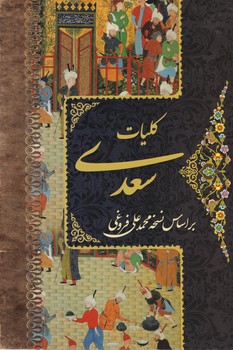 کلیات
سعدی
بر اساس نسخه محمد علی فروغی